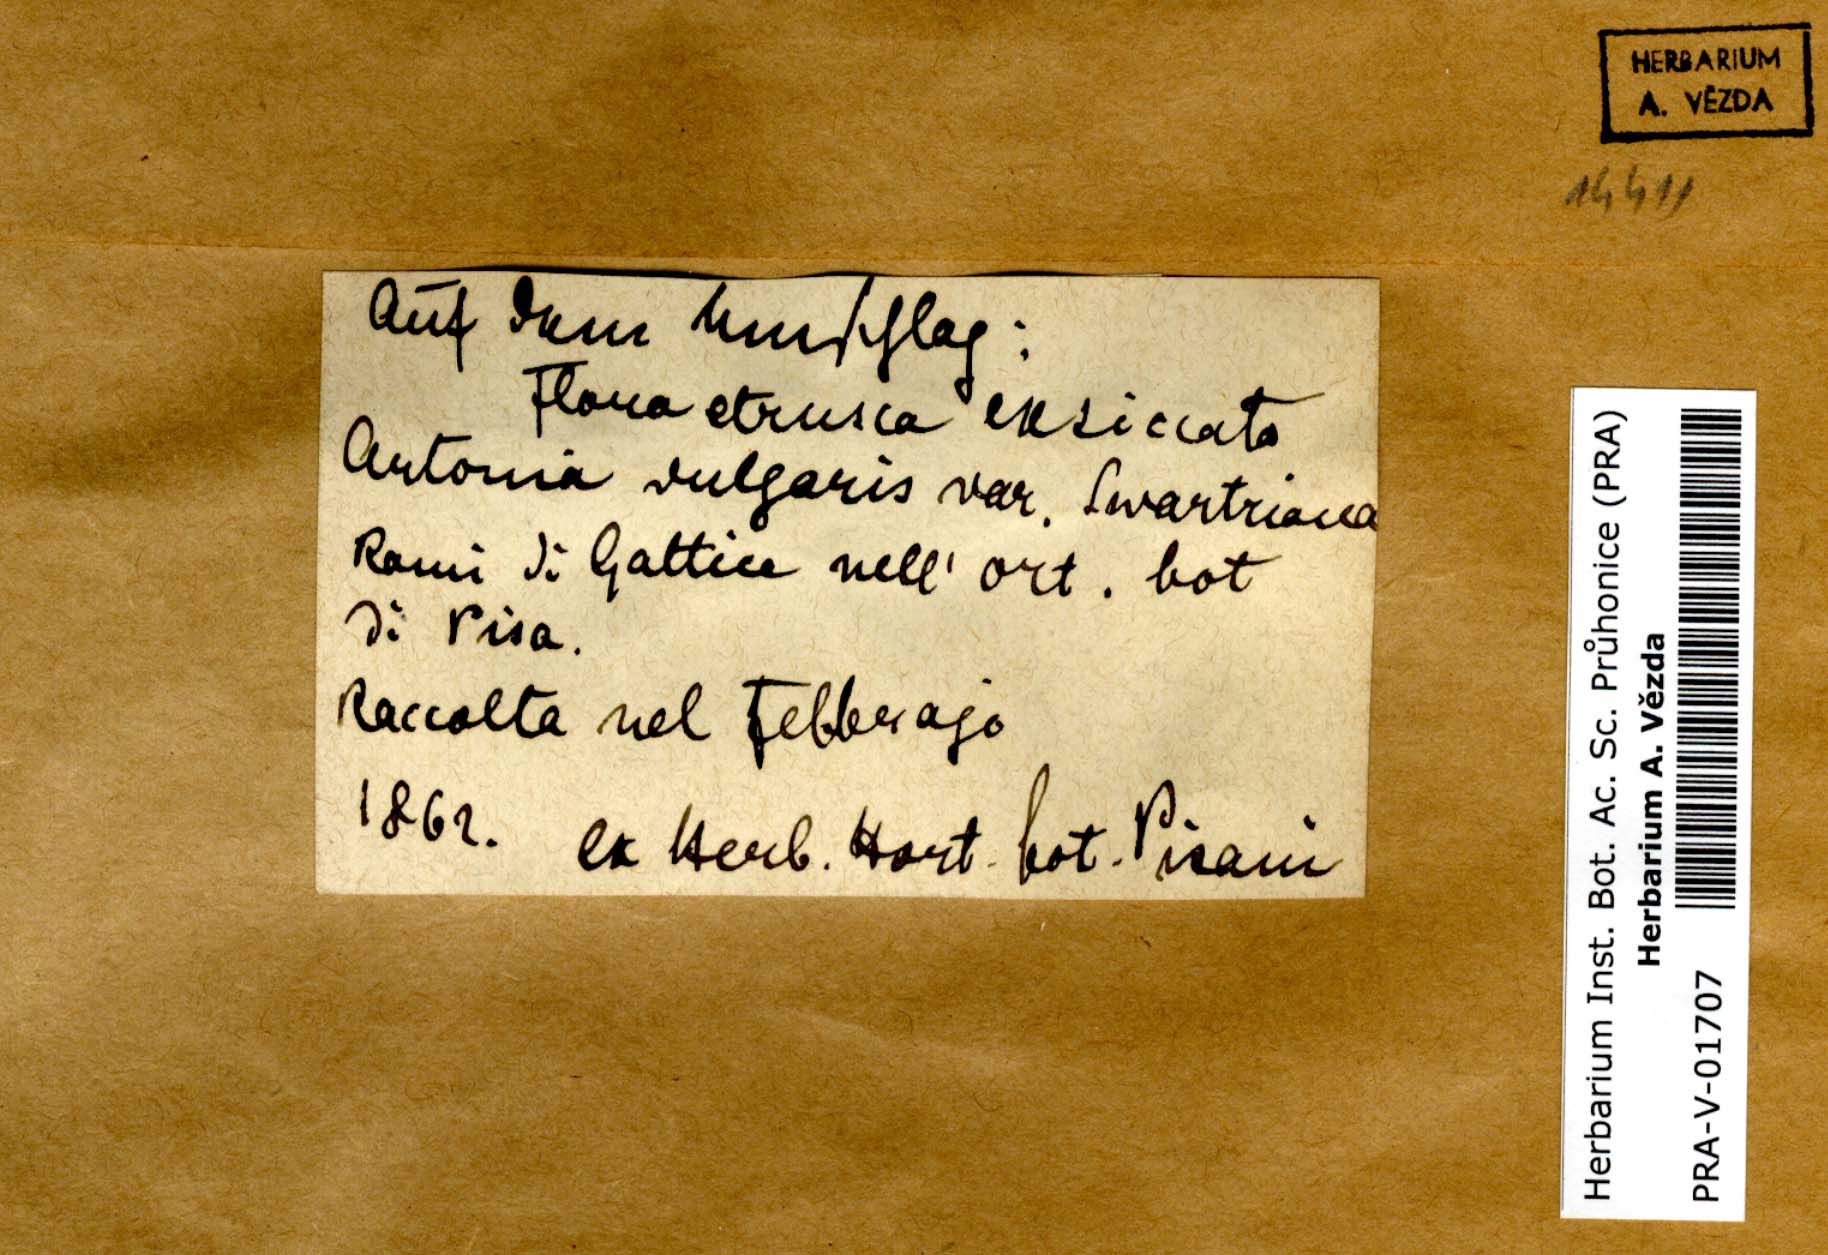 HERBARIUM
A. VĚZDA
14411
Auf dem Umschlag:
Flora etrusca exsiccata
Artonia vulgaris var. Swartziana
Rami di Gattice nell' ort. bot
di Pisa.
Raccolta nel Febbrajo
1862.
ex Herb. Hort. bot. Pisani
Herbarium Inst. Bot. Ac. Sc. Průhonice (PRA)
Herbarium A. Vězda
PRA-V-01707